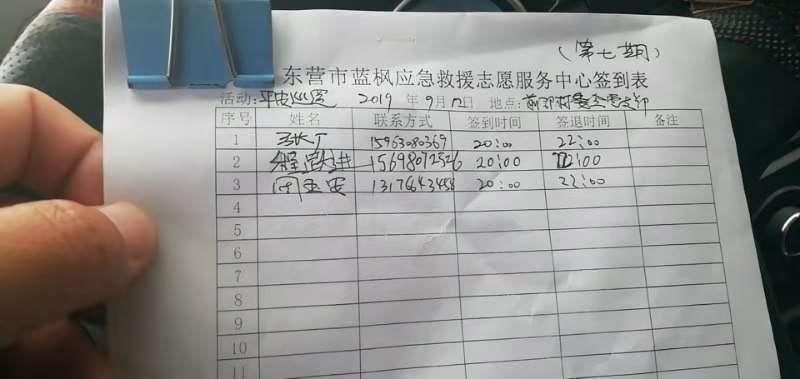 （第七期）
东营市蓝枫应急救援志愿服务中心签到表
活动:平安巡逻 2019 年 9 月 12 日 地点:
序号 姓名 联系方式 签到时间 签退时间 备注
1 15963080369 20:00 22:00
2 15698072526 20:00 22:00
3 13176643458 20:00 22:00
4
5
6
7
8
9
10
11